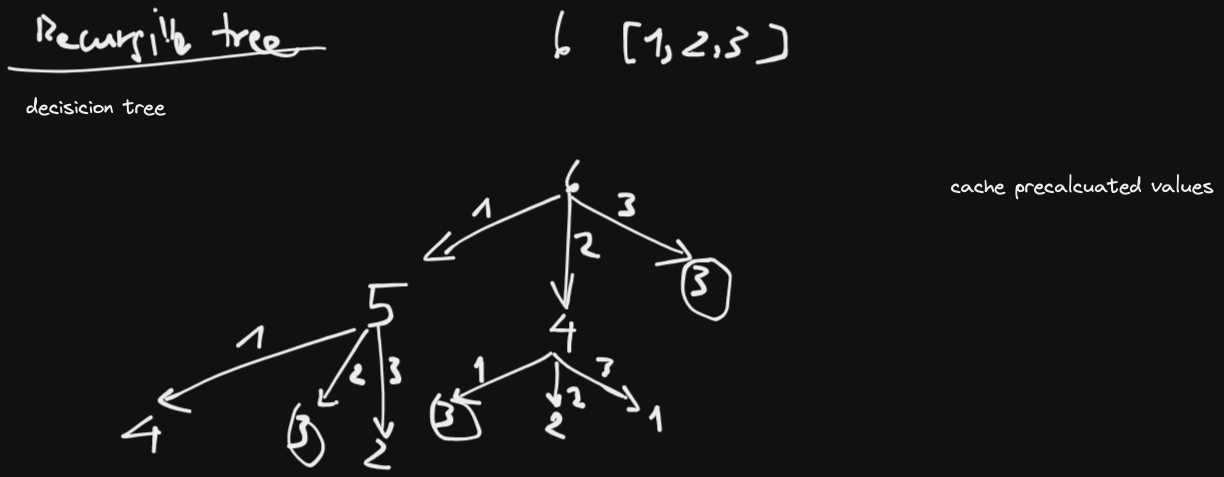 Recursive tree
6 [1,2,3]
decisicion tree
cache precalcuated values
6
1 2 3
5 4 3
1 2 3 1 2 3
4 3 2 3 2 1